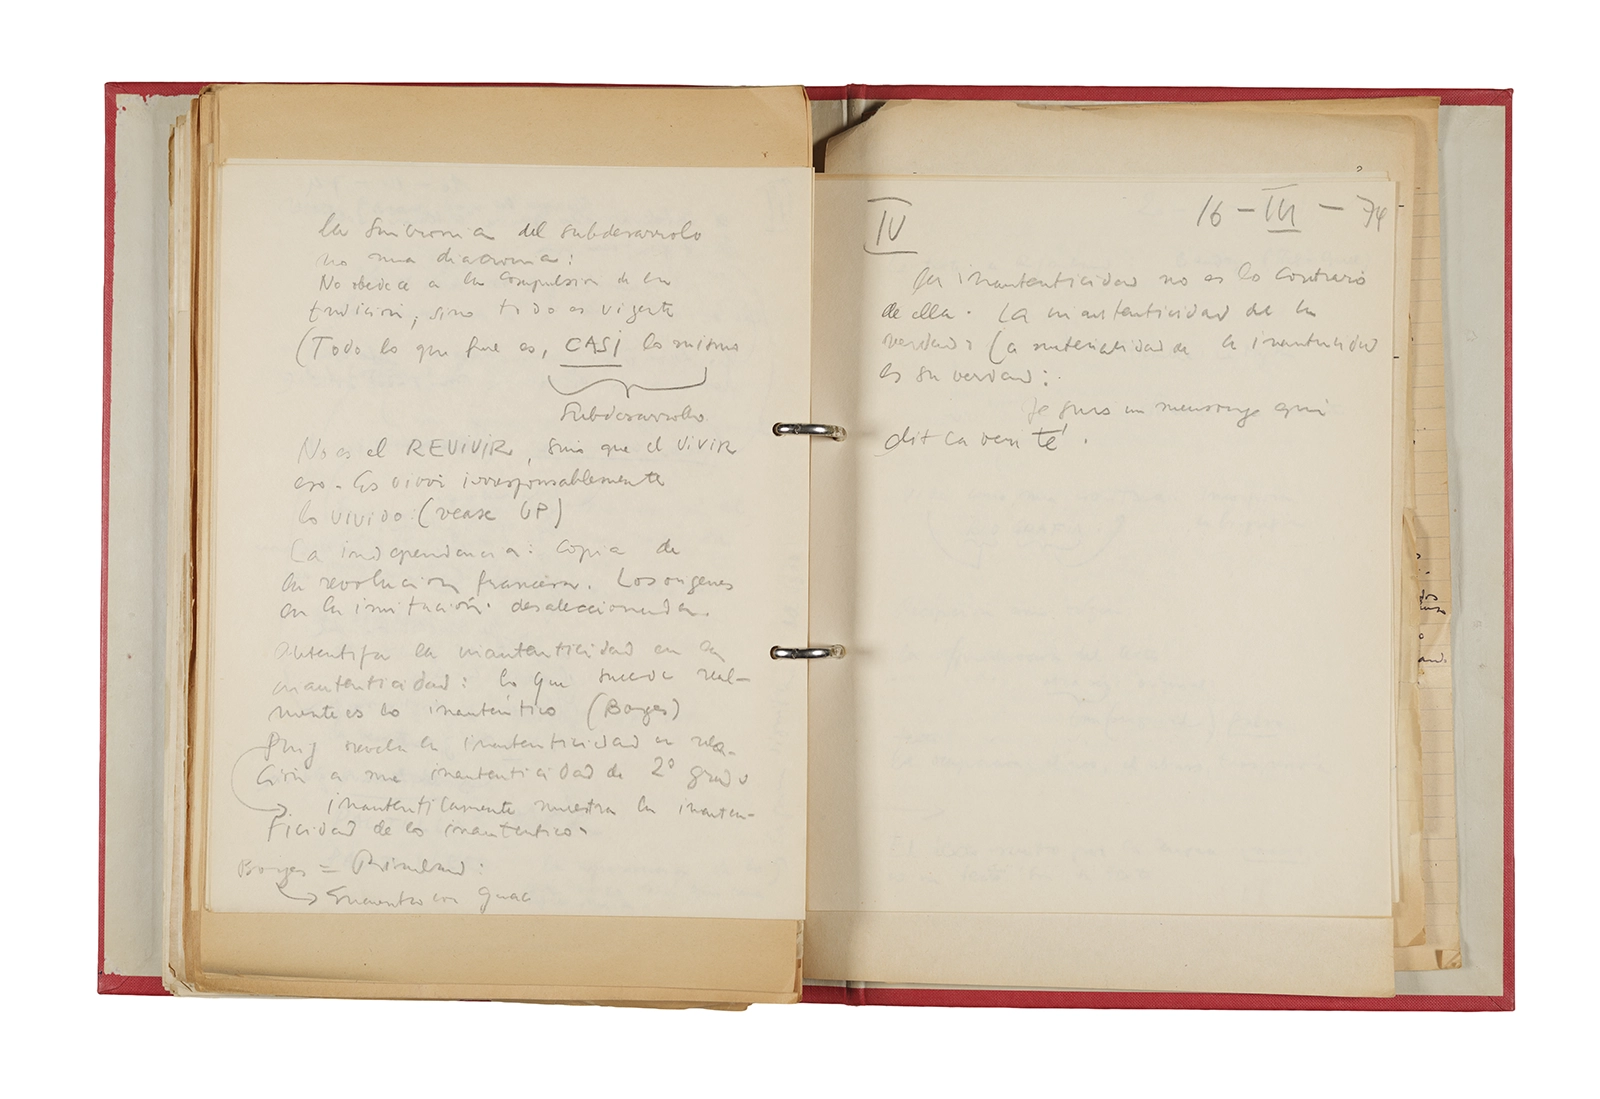 La sincronía del subdesarrollo
no una diacronía:
No obedece a la compulsión de la
tradición, sino todo es vigente
(Todo lo que fue es, CASI lo mismo
Subdesarrollo
No es el REVIVIR, sino que el VIVIR
eso. Es vivir irresponsablemente
lo vivido: (vease UP)
La independencia: copia de
la revolución francesa. Los orígenes
en la imitación. desaleccionada.
Autentifica la inautenticidad en la
inautenticidad: lo que sucede real-
mente es lo inauténtico (Borges)
Puig revela la inautenticidad en rela-
ción a una inautenticidad de 2º grado
inauténticamente muestra la inauten-
ticidad de lo inauténtico.
Borges =
Encuentro con
IV
16 - III - 74
La inautenticidad no es lo contrario
de ella. La inautenticidad de la
verdad: La materialidad de la inautenticidad
es su verdad:
Je suis un mensonge qui
dit la verité.